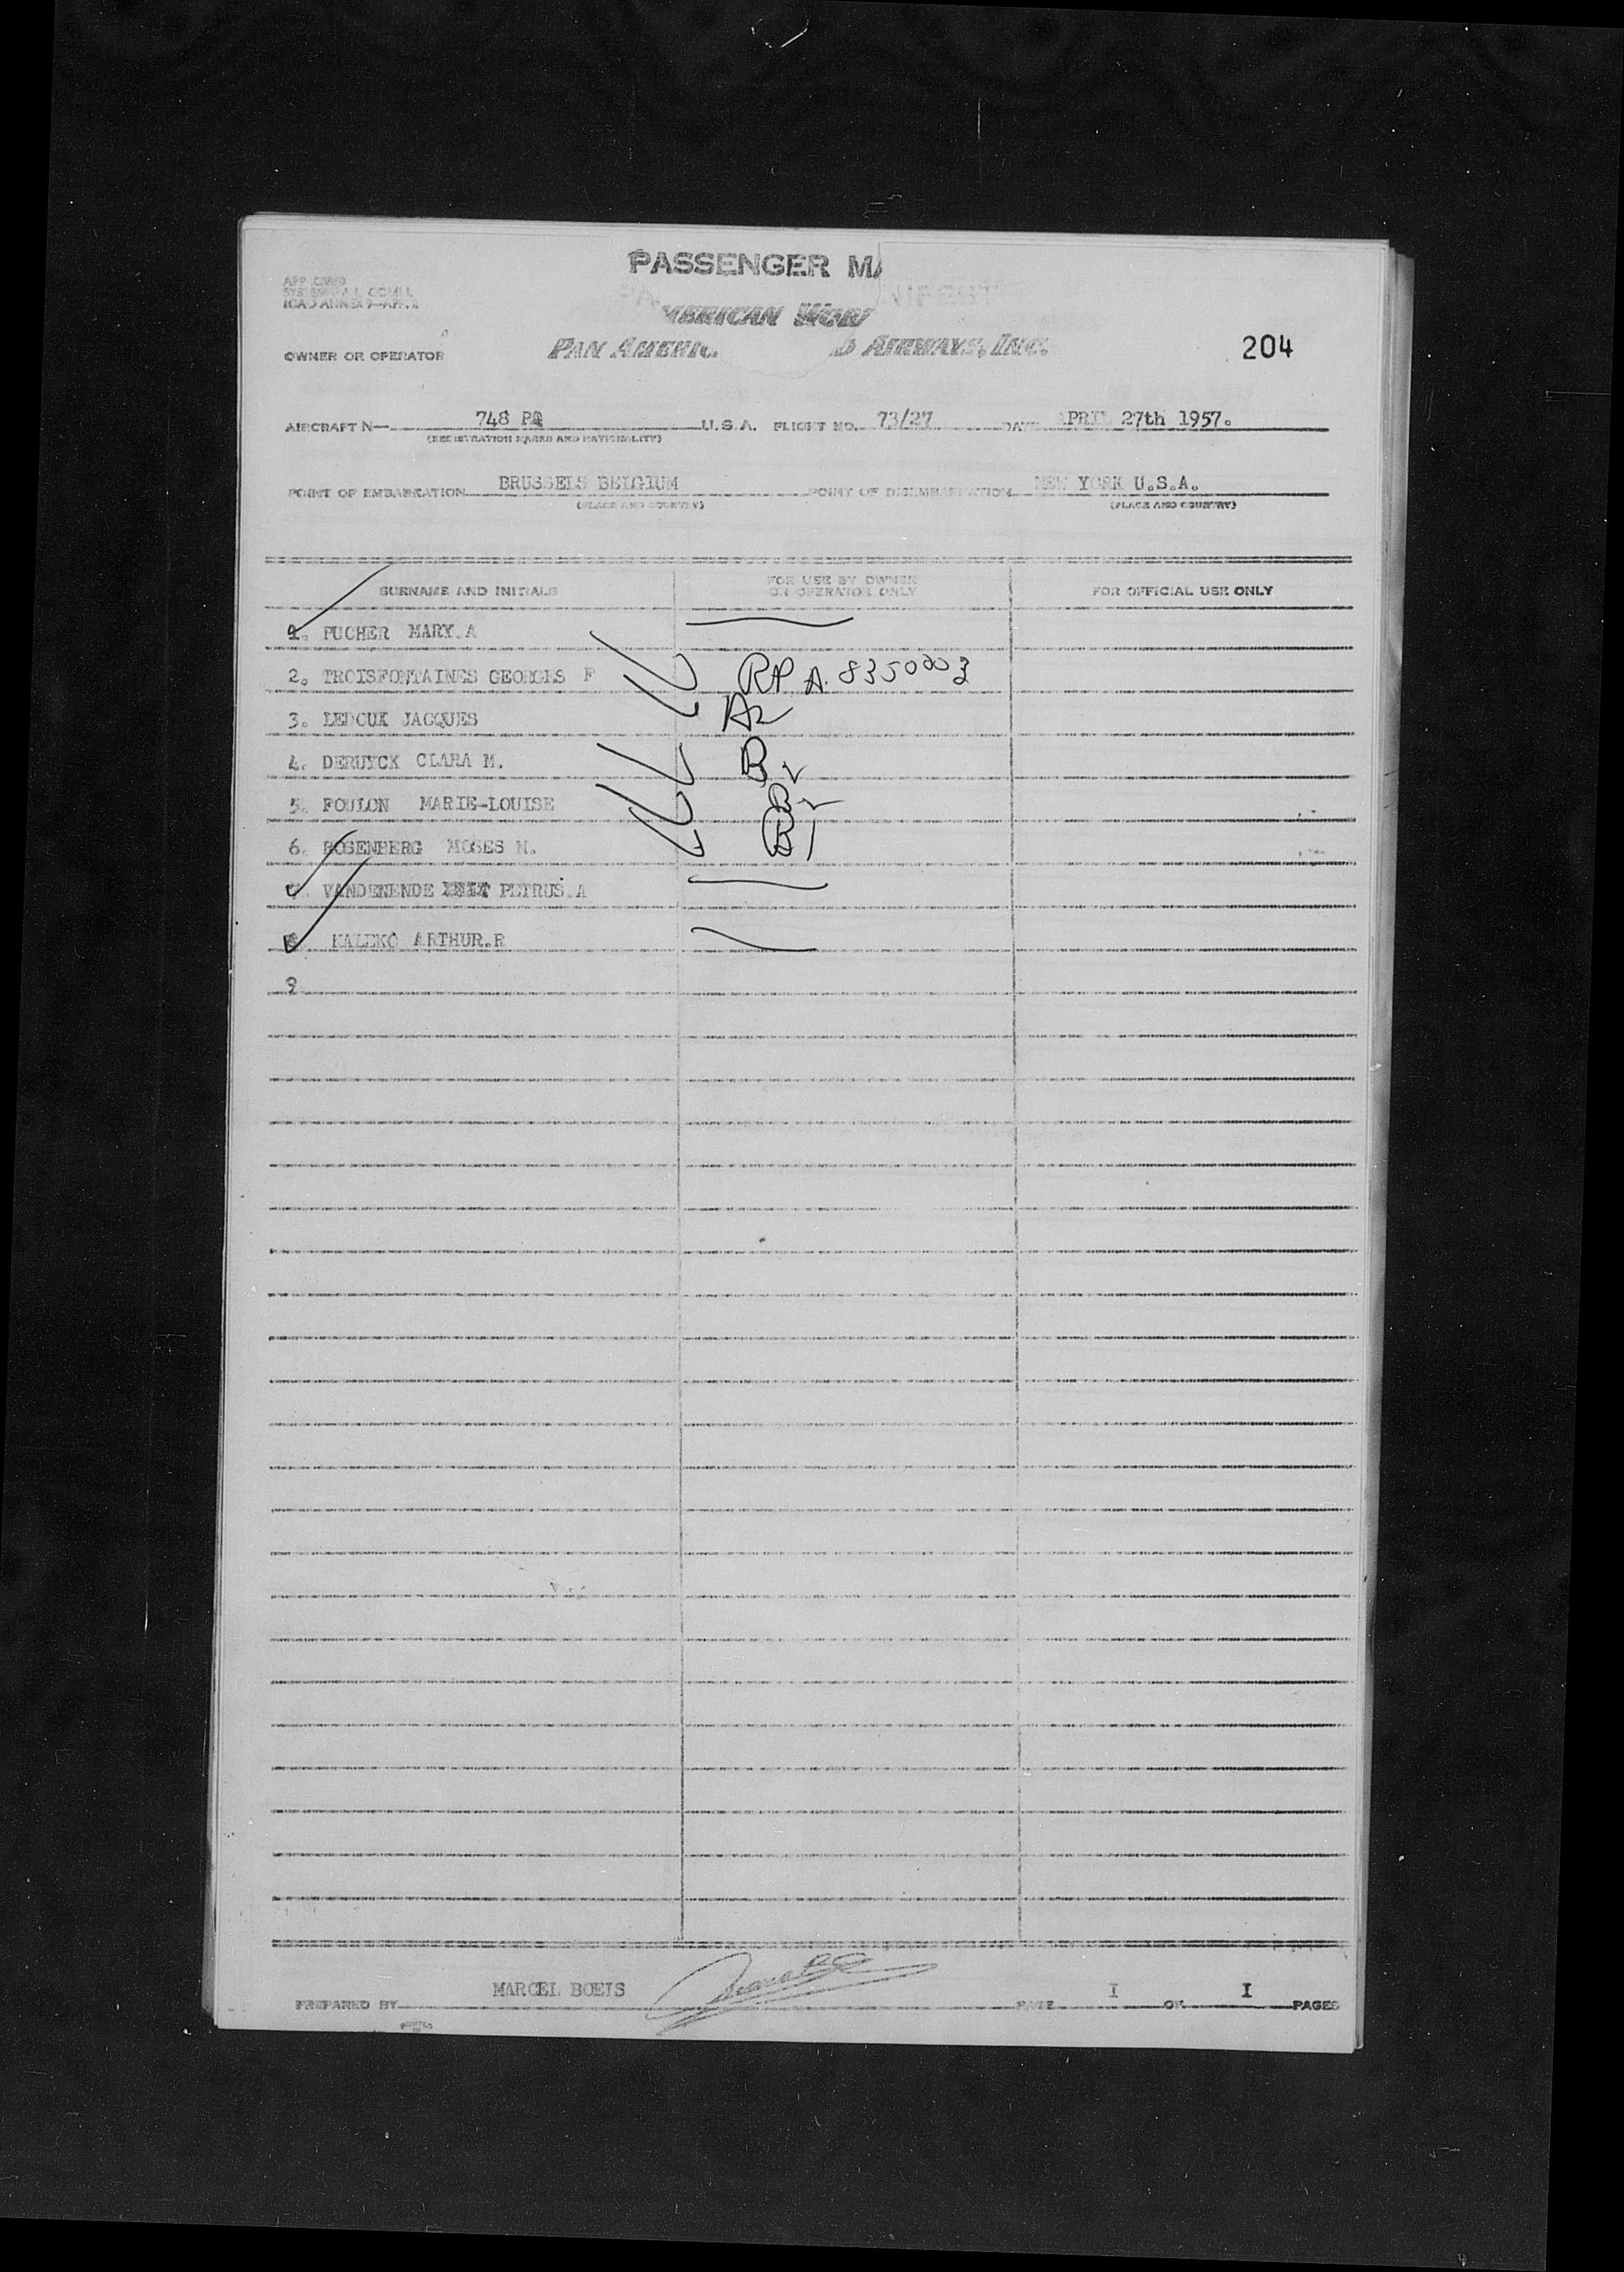 PASSENGER MA
APPROVED
ICAO ANNEX 9—APP. 
MERICAN WORL
PAN AMERIC D AIRWAYS, INC.
204
OWNER OR OPERATOR
AIRCRAFT N— 748 PA U.S.A. FLIGHT NO. 73/27 DATE APRIL 27th 1957.
(REGISTRATION MARKS AND NATIONALITY)
POINT OF EMBARKATION BRUSSELS BELGIUM POINT OF DISEMBARKATION NEW YORK U.S.A.
(PLACE AND COUNTRY) (PLACE AND COUNTRY)
SURNAME AND INITIALS
FOR USE BY OWNER
OR OPERATOR ONLY
FOR OFFICIAL USE ONLY
1. PUCHER MARY.A
2. TROISFONTAINES GEORGES F RP A 8350003
3. LEDOUX JACQUES A2
4. DERUYCK CLARA M. B2
5. FOULON MARIE-LOUISE B2
6. ROSENBERG MOSES M. B1
VANDENENDE PETRUS.A
KALEKO ARTHUR.R
9
PREPARED BY MARCEL BOEIS PAGE I OF I PAGES